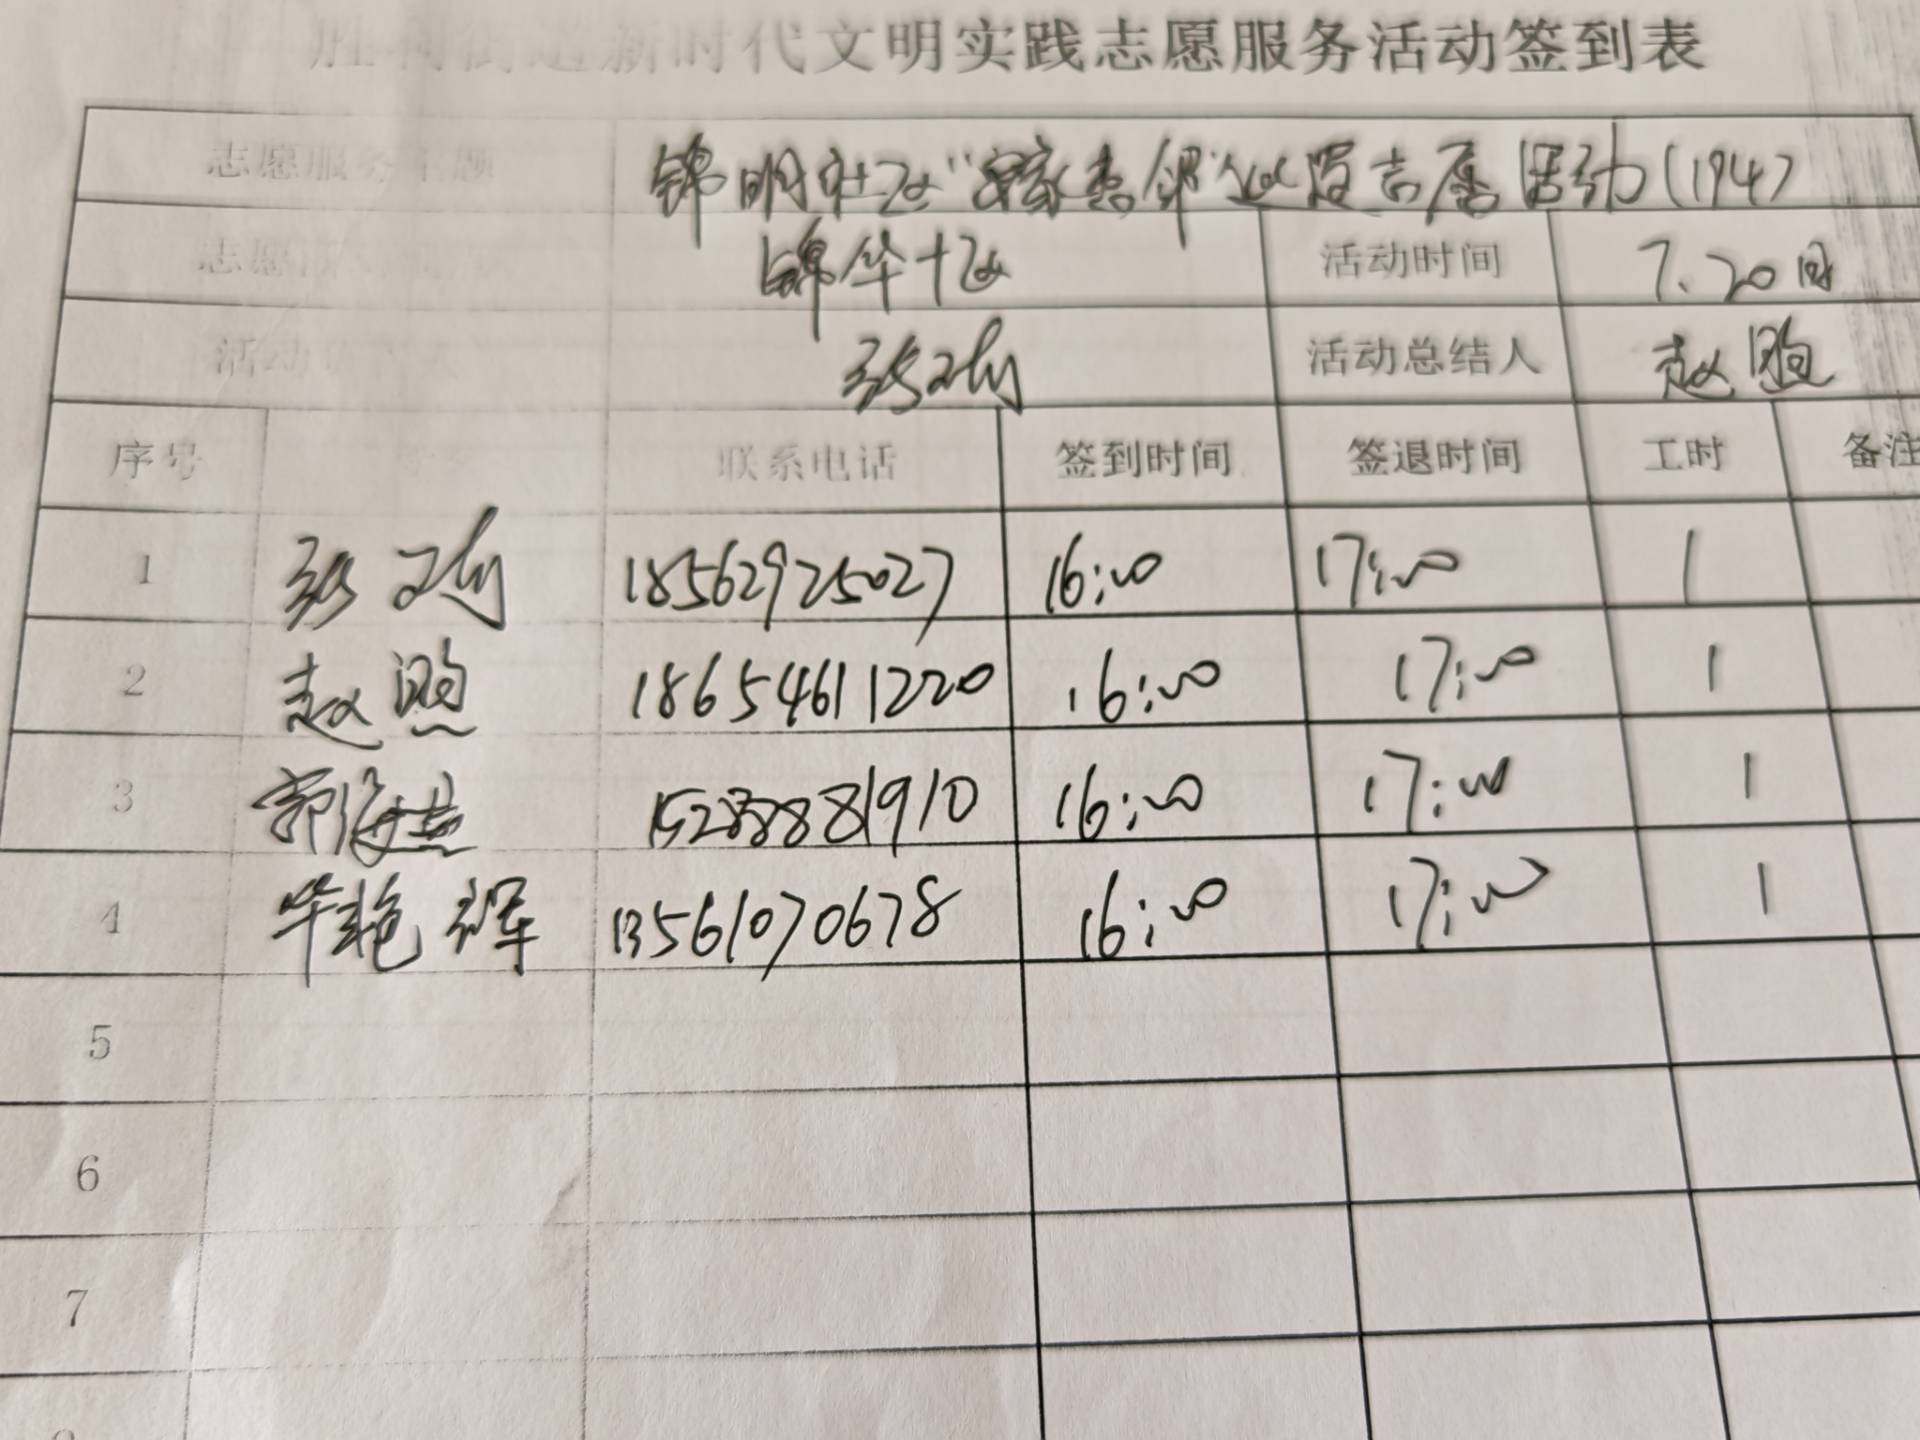 胜利街道新时代文明实践志愿服务活动签到表
志愿服务主题 锦明社区 活动(194)
志愿 锦华十区 活动时间 7.20日
活动 张 活动总结人 赵
序号 联系电话 签到时间 签退时间 工时 备注
1 张 18562925027 16:00 17:00 1
2 赵 18654611220 16:00 17:00 1
3 郭海燕 15288881910 16:00 17:00 1
4 毕艳辉 13561070678 16:00 17:00 1
5
6
7